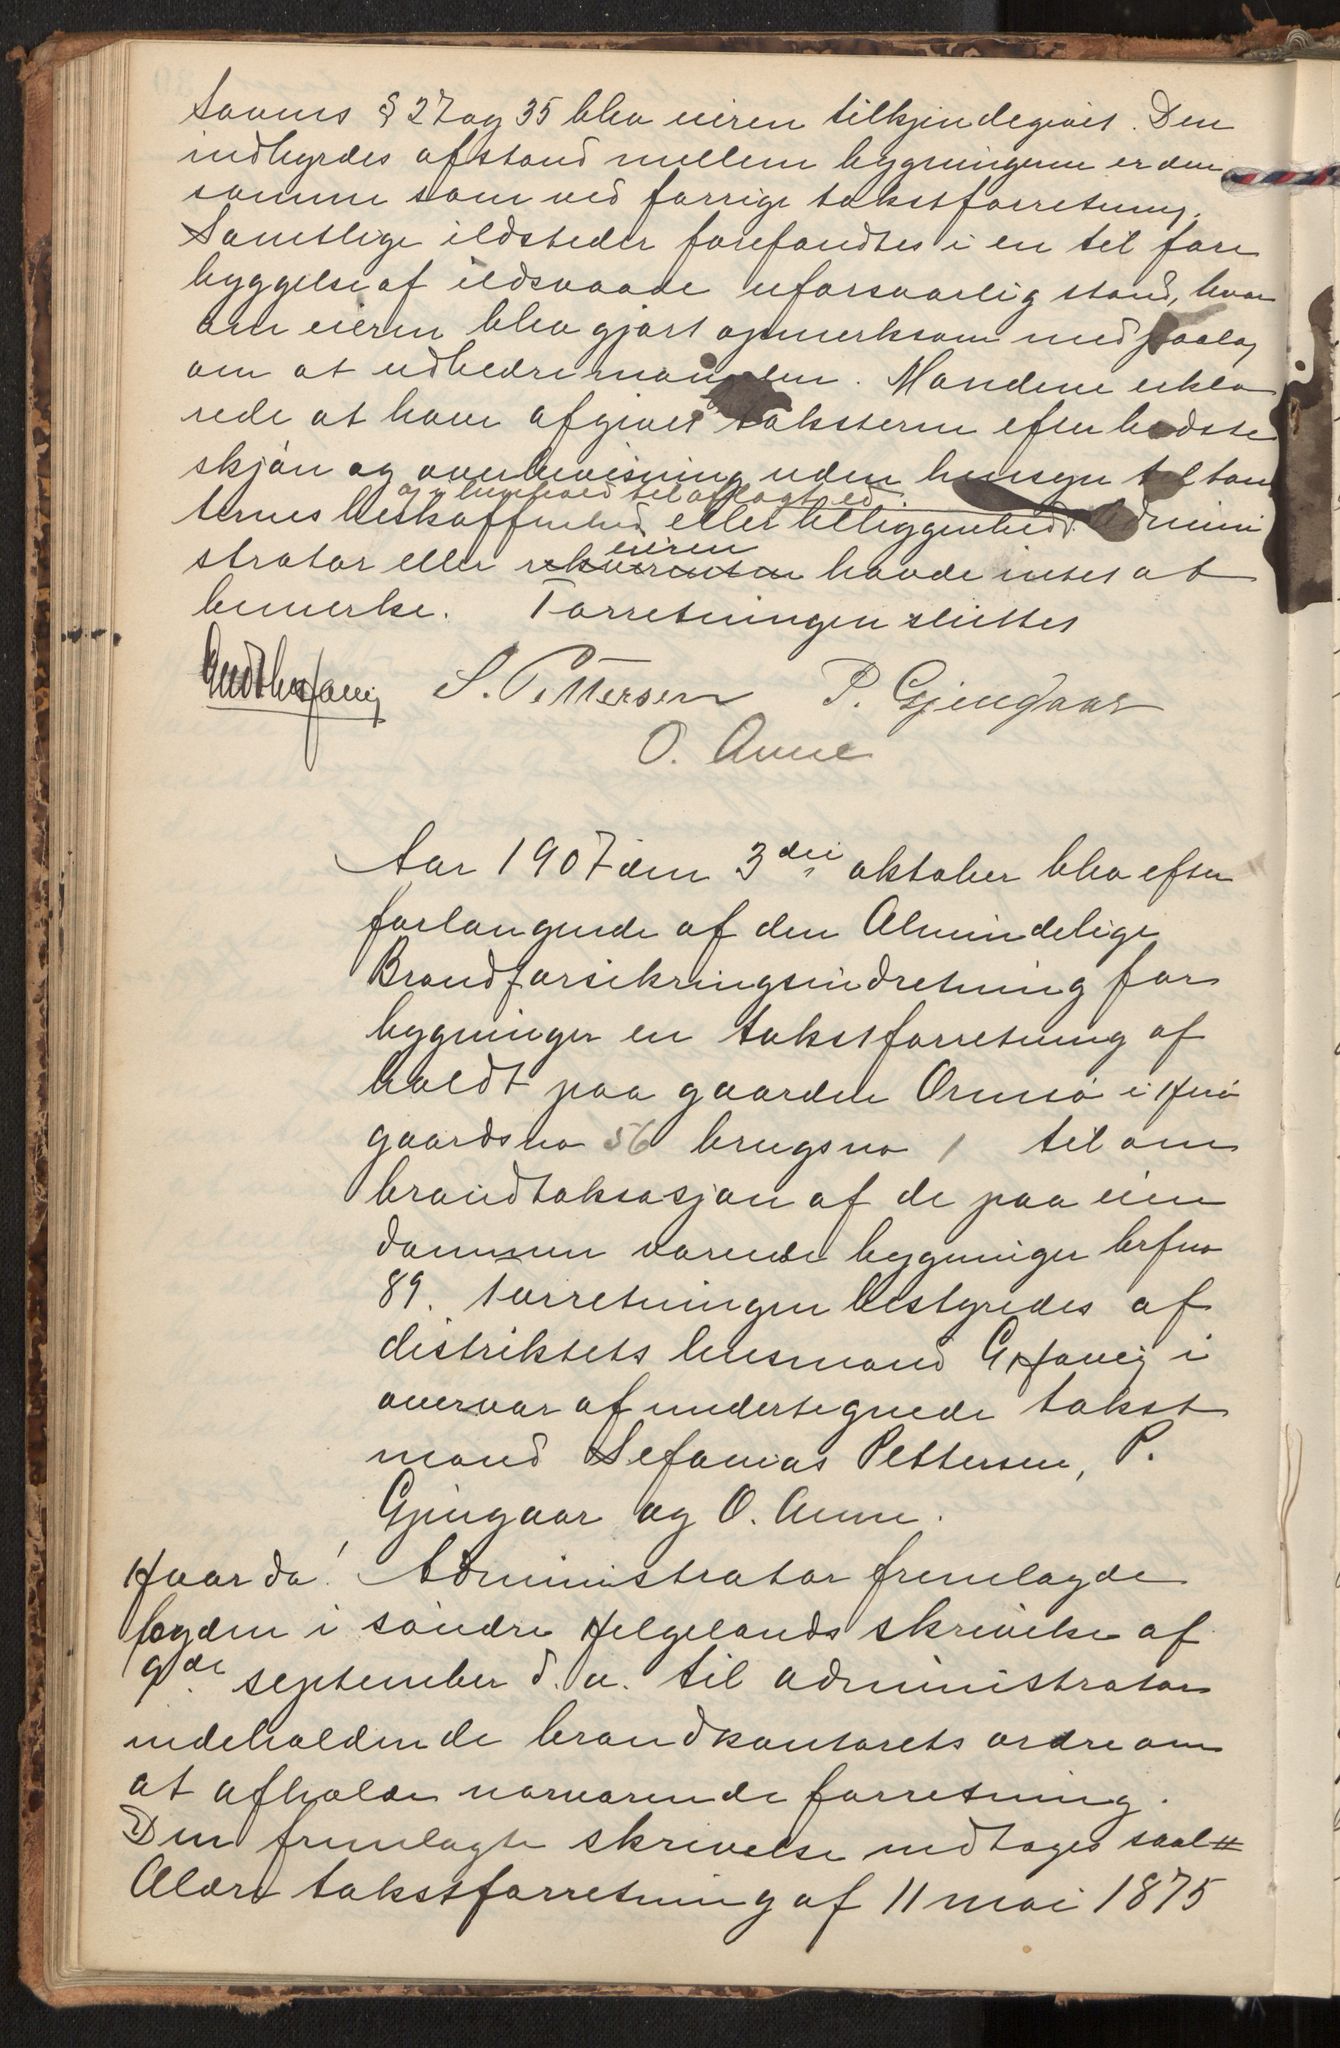 Lovens § 27 og 35 blev eieren tilkjendegivet. Den
indbyrdes afstand mellem bygningerne er den
samme som ved forrige takstforretning.
Samtlige ildsteder forefandtes i en til fore
byggelse af ildsvaade uforsvarlig stand, hvor
om eieren blev gjort opmerksom med paalæg
om at udbedre manglen. Mændene erklæ
rede at have afgivet taksterne efter bedste
skjøn og overbevisning uden hensyn til tom
og i henhold til aflagt ed.
ternes beskaffenhed eller beliggenhed. Admini
eieren
strator eller rekvirenten havde intet at
bemerke. Forretningen sluttet
S. Pettersen P. Gjengaar
O. Aune
Aar 1907 den 3die oktober blev efter
forlangende af den Almindelige
Brandforsikringsindretning for
bygninger en takstforretning af
holdt paa gaarden Ormsø i
gaardsno 56 brugsno 1 til om
brandtaksasjon af de paa eien
dommen værende bygninger brfno
89. Forretningen bestyredes af
distriktets lensmand G Havig i
overvær af undertegnede takst
mænd Sefanias Pettersen, P.
Gjengaar og O. Aune.
Hvorda! Administrator fremlagde
fogden i søndre Helgelands skrivelse af
9de september d. a. til administrator
indeholdende brandkontorets ordre om
at afholde nærværende forretning.
Den fremlagte skrivelse indtages saal#
Ældre takstforretning af 11 mai 1875